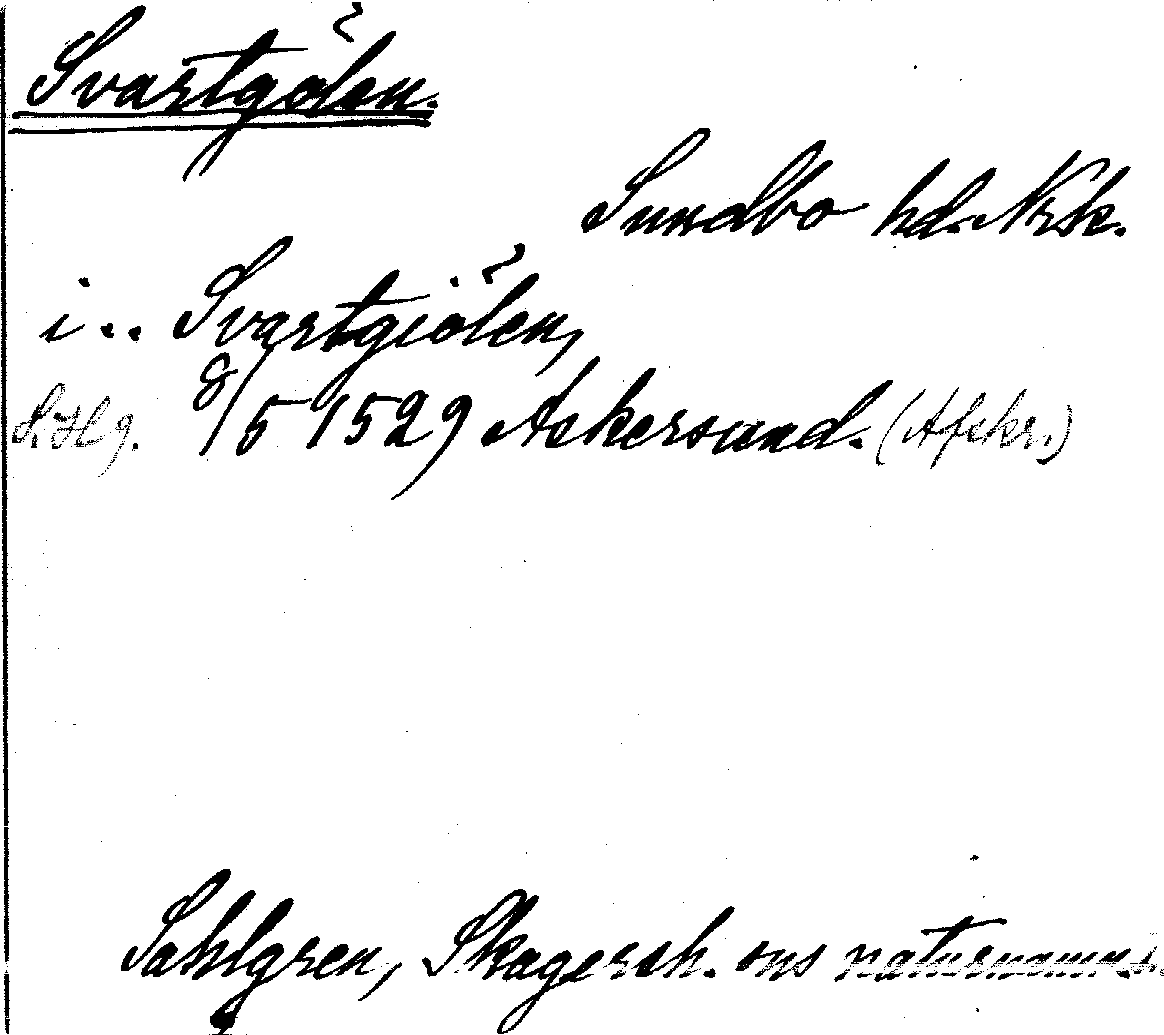 Svartgölen.
Sundbo hd. Nrk.
i.. Svartgiölen,
S.Hg. 8/5 1529 Askersund. (Afskr.)
Sahlgren, Skagersh. ons naturnamn.